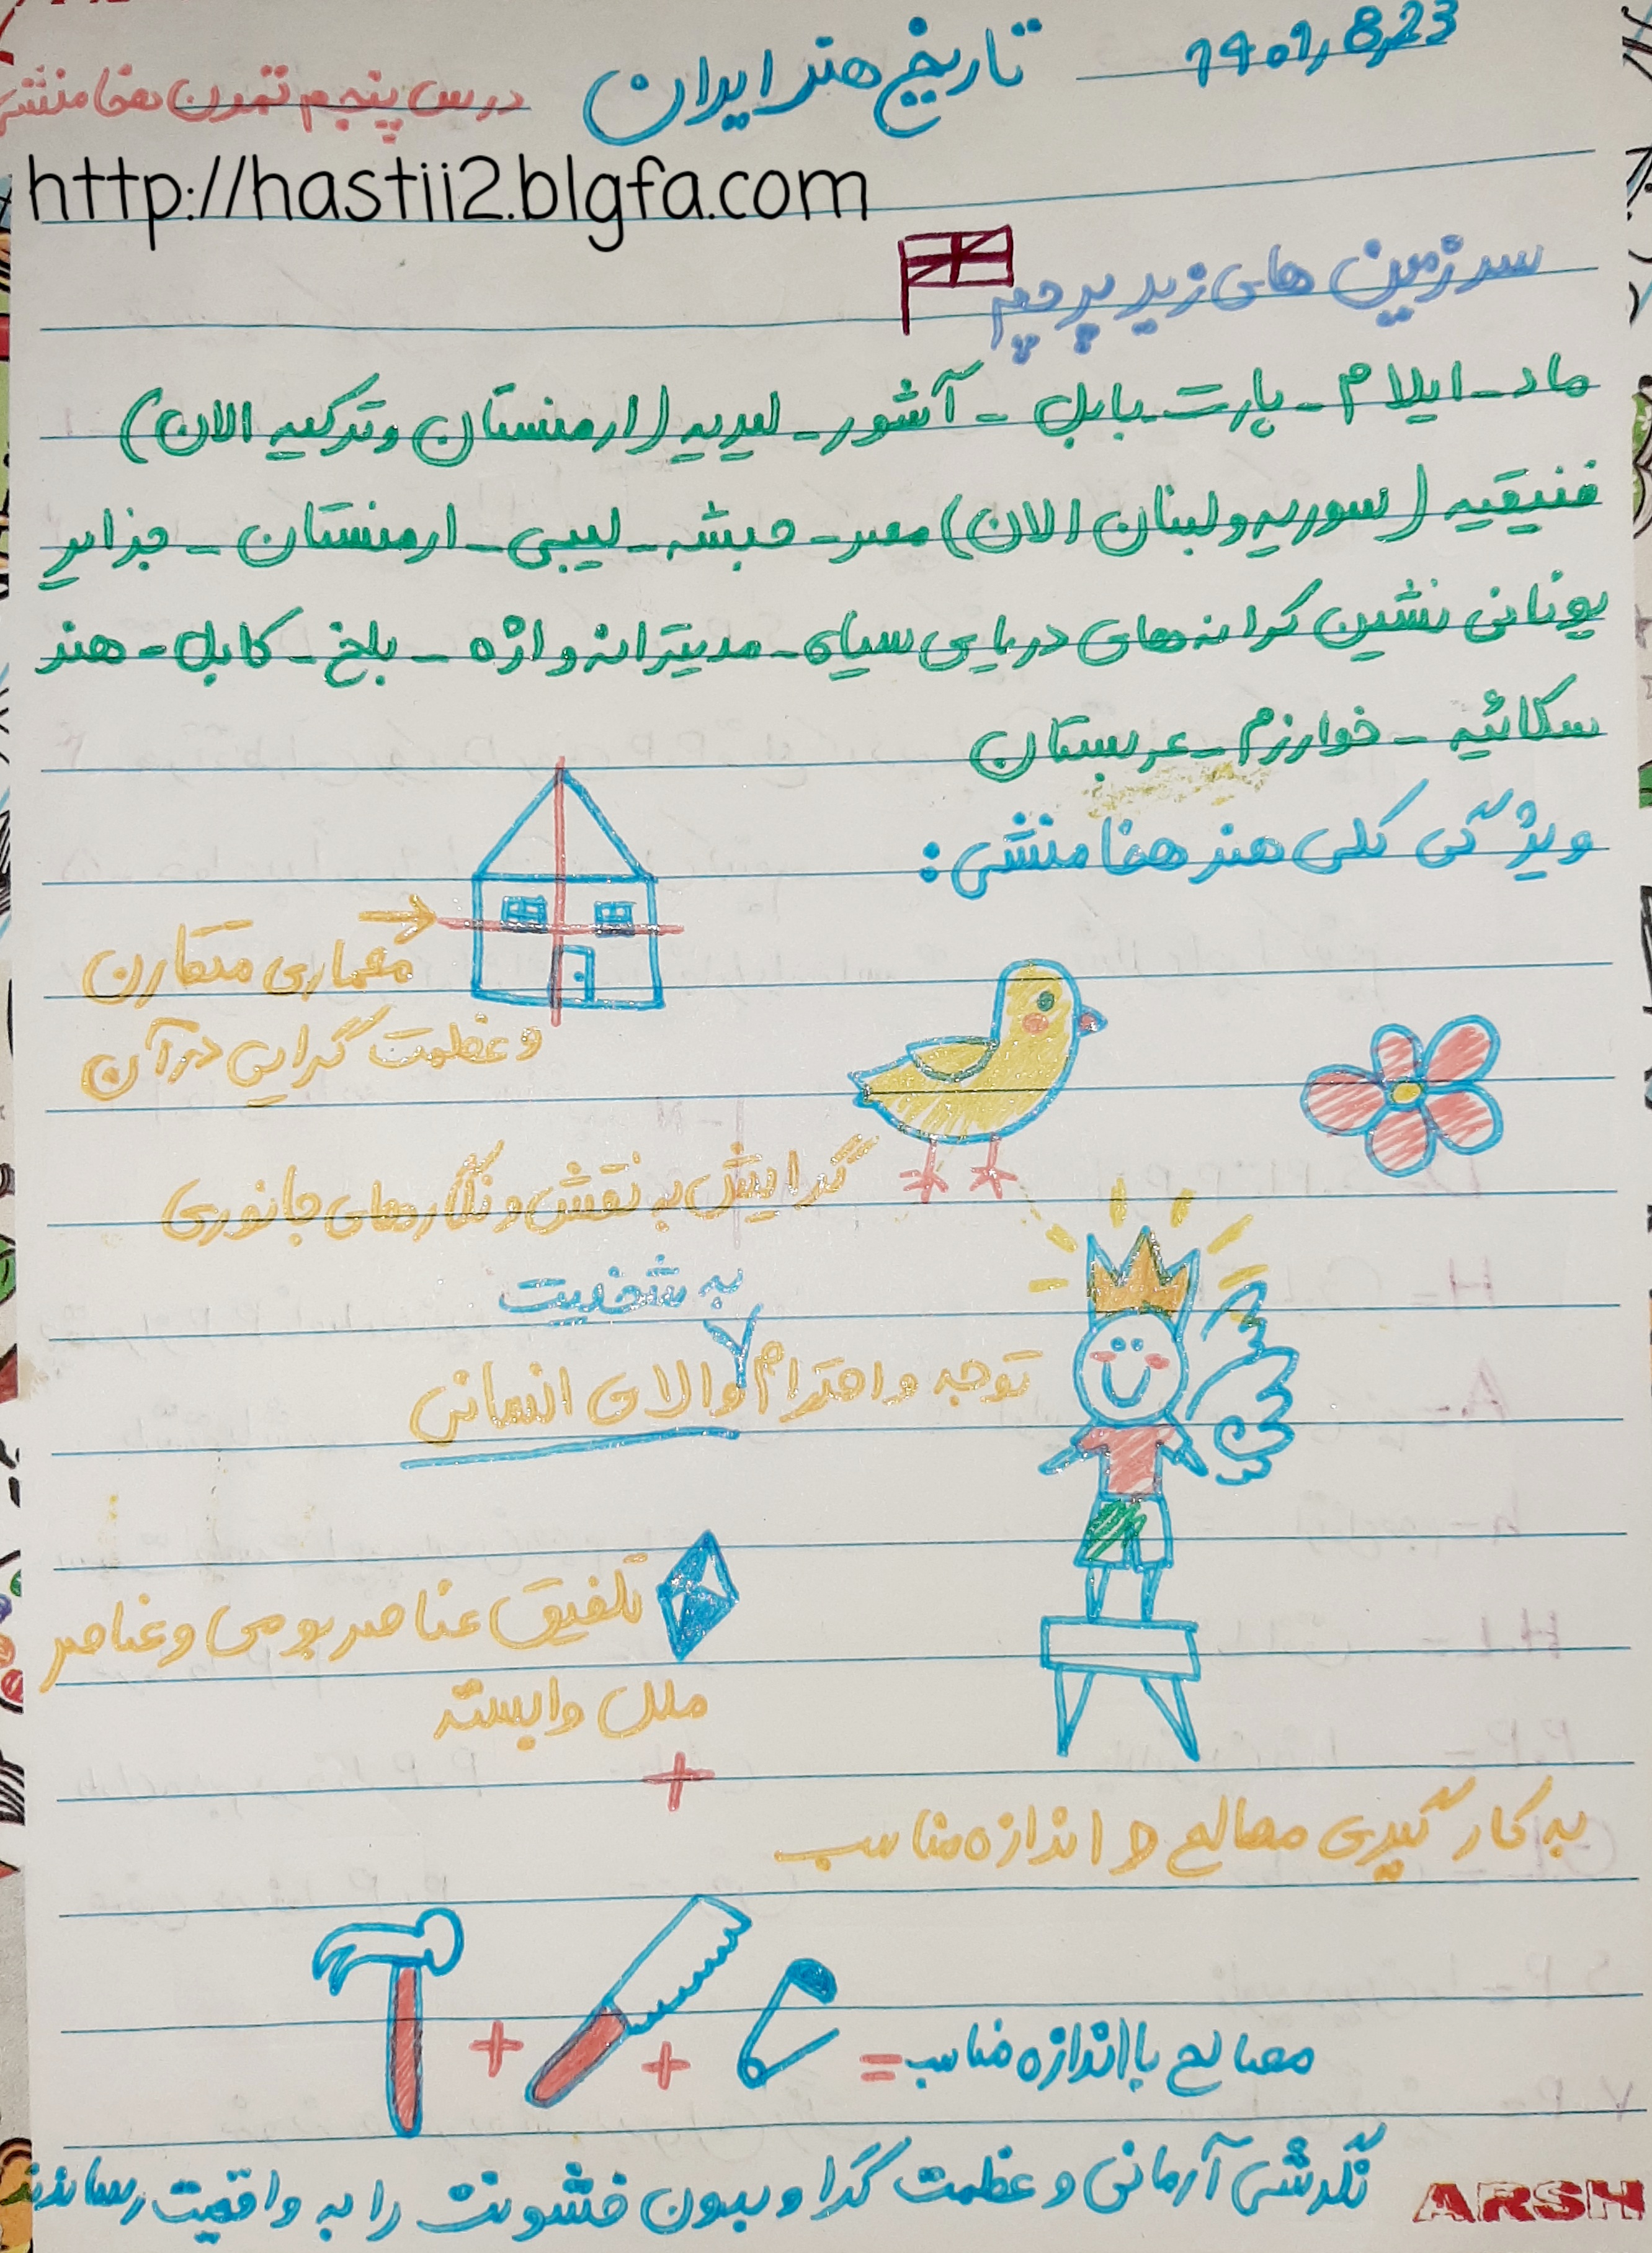 1401,8,23
تاریخ هنر ایران
درس پنجم تمدن هخامنشی
http://hastii2.blgfa.com
سرزمین های زیر پرچم
ماد - ایلام - پارت - بابل - آشور - لیدیه (ارمنستان و ترکیه الان)
فنیقیه (سوریه و لبنان الان) مصر - حبشه - لیبی - ارمنستان - جزایر
یونانی نشین کرانه های دریایی سیاه - مدیترانه و اژه - بلخ - کابل - هند
سکائیه - خوارزم - عربستان
ویژگی کلی هنر هخامنشی :
معماری متقارن
و عظمت گرایی در آن
گرایش به نقش و نگارهای جانوری
به شخصیت
توجه و احترام والای انسانی
تلفیق عناصر بومی و عناصر
ملل وابسته
+
به کار گیری مصالح و اندازه مناسب
+ + = مصالح با اندازه مناسب
نگرشی آرمانی و عظمت گرا و بدون خشونت را به واقعیت رساندند
ARSH